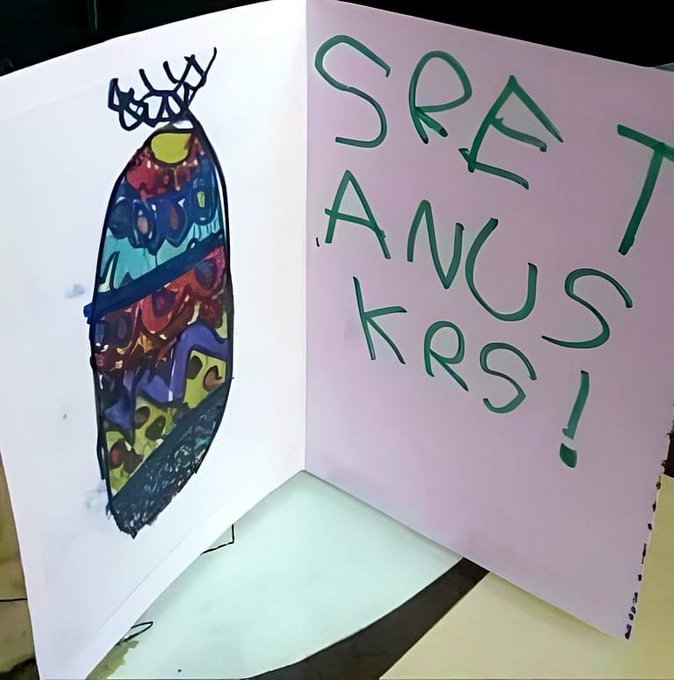 SRE T
ANUS
KRS!